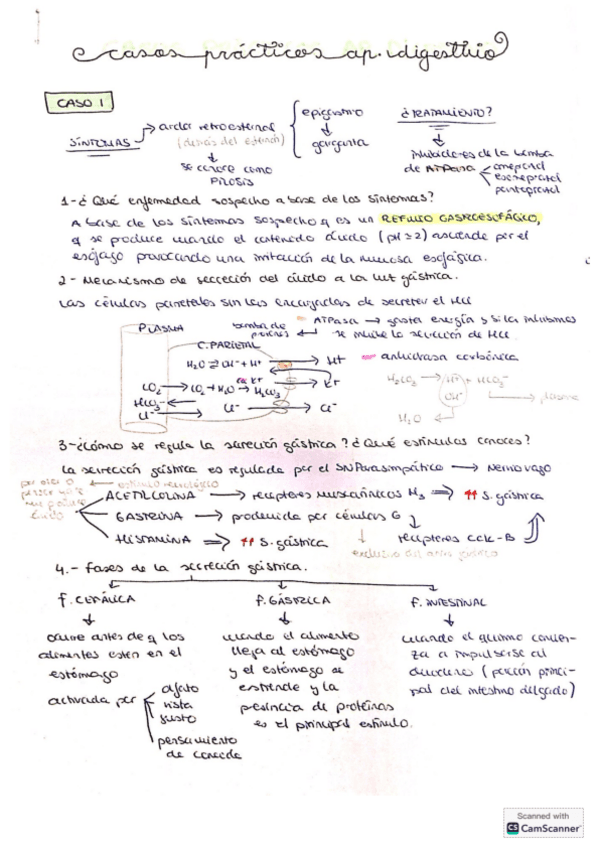 casos prácticos ap. digestivo
CASO 1
SÍNTOMAS → ardor retroesternal
(detrás del esternón)
↓
se conoce como
PIROSIS
epigastrio
↓
garganta
¿TRATAMIENTO?
↓
inhibidores de la bomba
de ATPasa
omeprazol
esomeprazol
pantoprazol
1-¿Qué enfermedad sospecho a base de los síntomas?
A base de los síntomas sospecho q es un REFLUJO GASTROESOFÁGICO,
q se produce cuando el contenido ácido (pH ≥ 2) asciende por el
esófago provocando una irritación de la mucosa esofágica.
2- Mecanismo de secreción del ácido a la luz gástrica.
Las células parietales son las encargadas de secretar el HCl
PLASMA
bomba de
protones
ATPasa → gasta energía y si la inhibimos
se inhibe la secreción de HCl.
C.PARIETAL
anhidrasa carbónica
H₂O ⇌ OH⁻ + H⁺ → H⁺
K⁺ → K⁺
CO₂ → CO₂ + H₂O → H₂CO₃
HCO₃⁻ ←
Cl⁻ → Cl⁻ → Cl⁻
H₂CO₃ → H⁺ + HCO₃⁻ → plasma
OH⁻
H₂O ←
3-¿Cómo se regula la secreción gástrica? ¿Qué estímulos conoces?
La secreción gástrica es regulada por el SNParasimpático → Nervio vago
por olor o
← estímulo neurológico
ACETILCOLINA → receptores muscarínicos M₃ ⇒ ↑↑ S. gástrica
GASTRINA → producida por células G
↓
receptores CCK-B
↓
exclusivo del antro gástrico
HISTAMINA ⇒ ↑↑ S. gástrica
4.- Fases de la secreción gástrica.
F. CEFÁLICA
↓
ocurre antes de q los
alimentos estén en el
estómago
activada por
olfato
vista
gusto
pensamiento
de comida
F. GÁSTRICA
↓
cuando el alimento
llega al estómago
y el estómago se
extiende y la
presencia de proteínas
es el principal estímulo.
F. INTESTINAL
↓
cuando el quimo comien-
za a impulsarse al
duodeno (porción princi-
pal del intestino delgado)
Scanned with
CS CamScanner